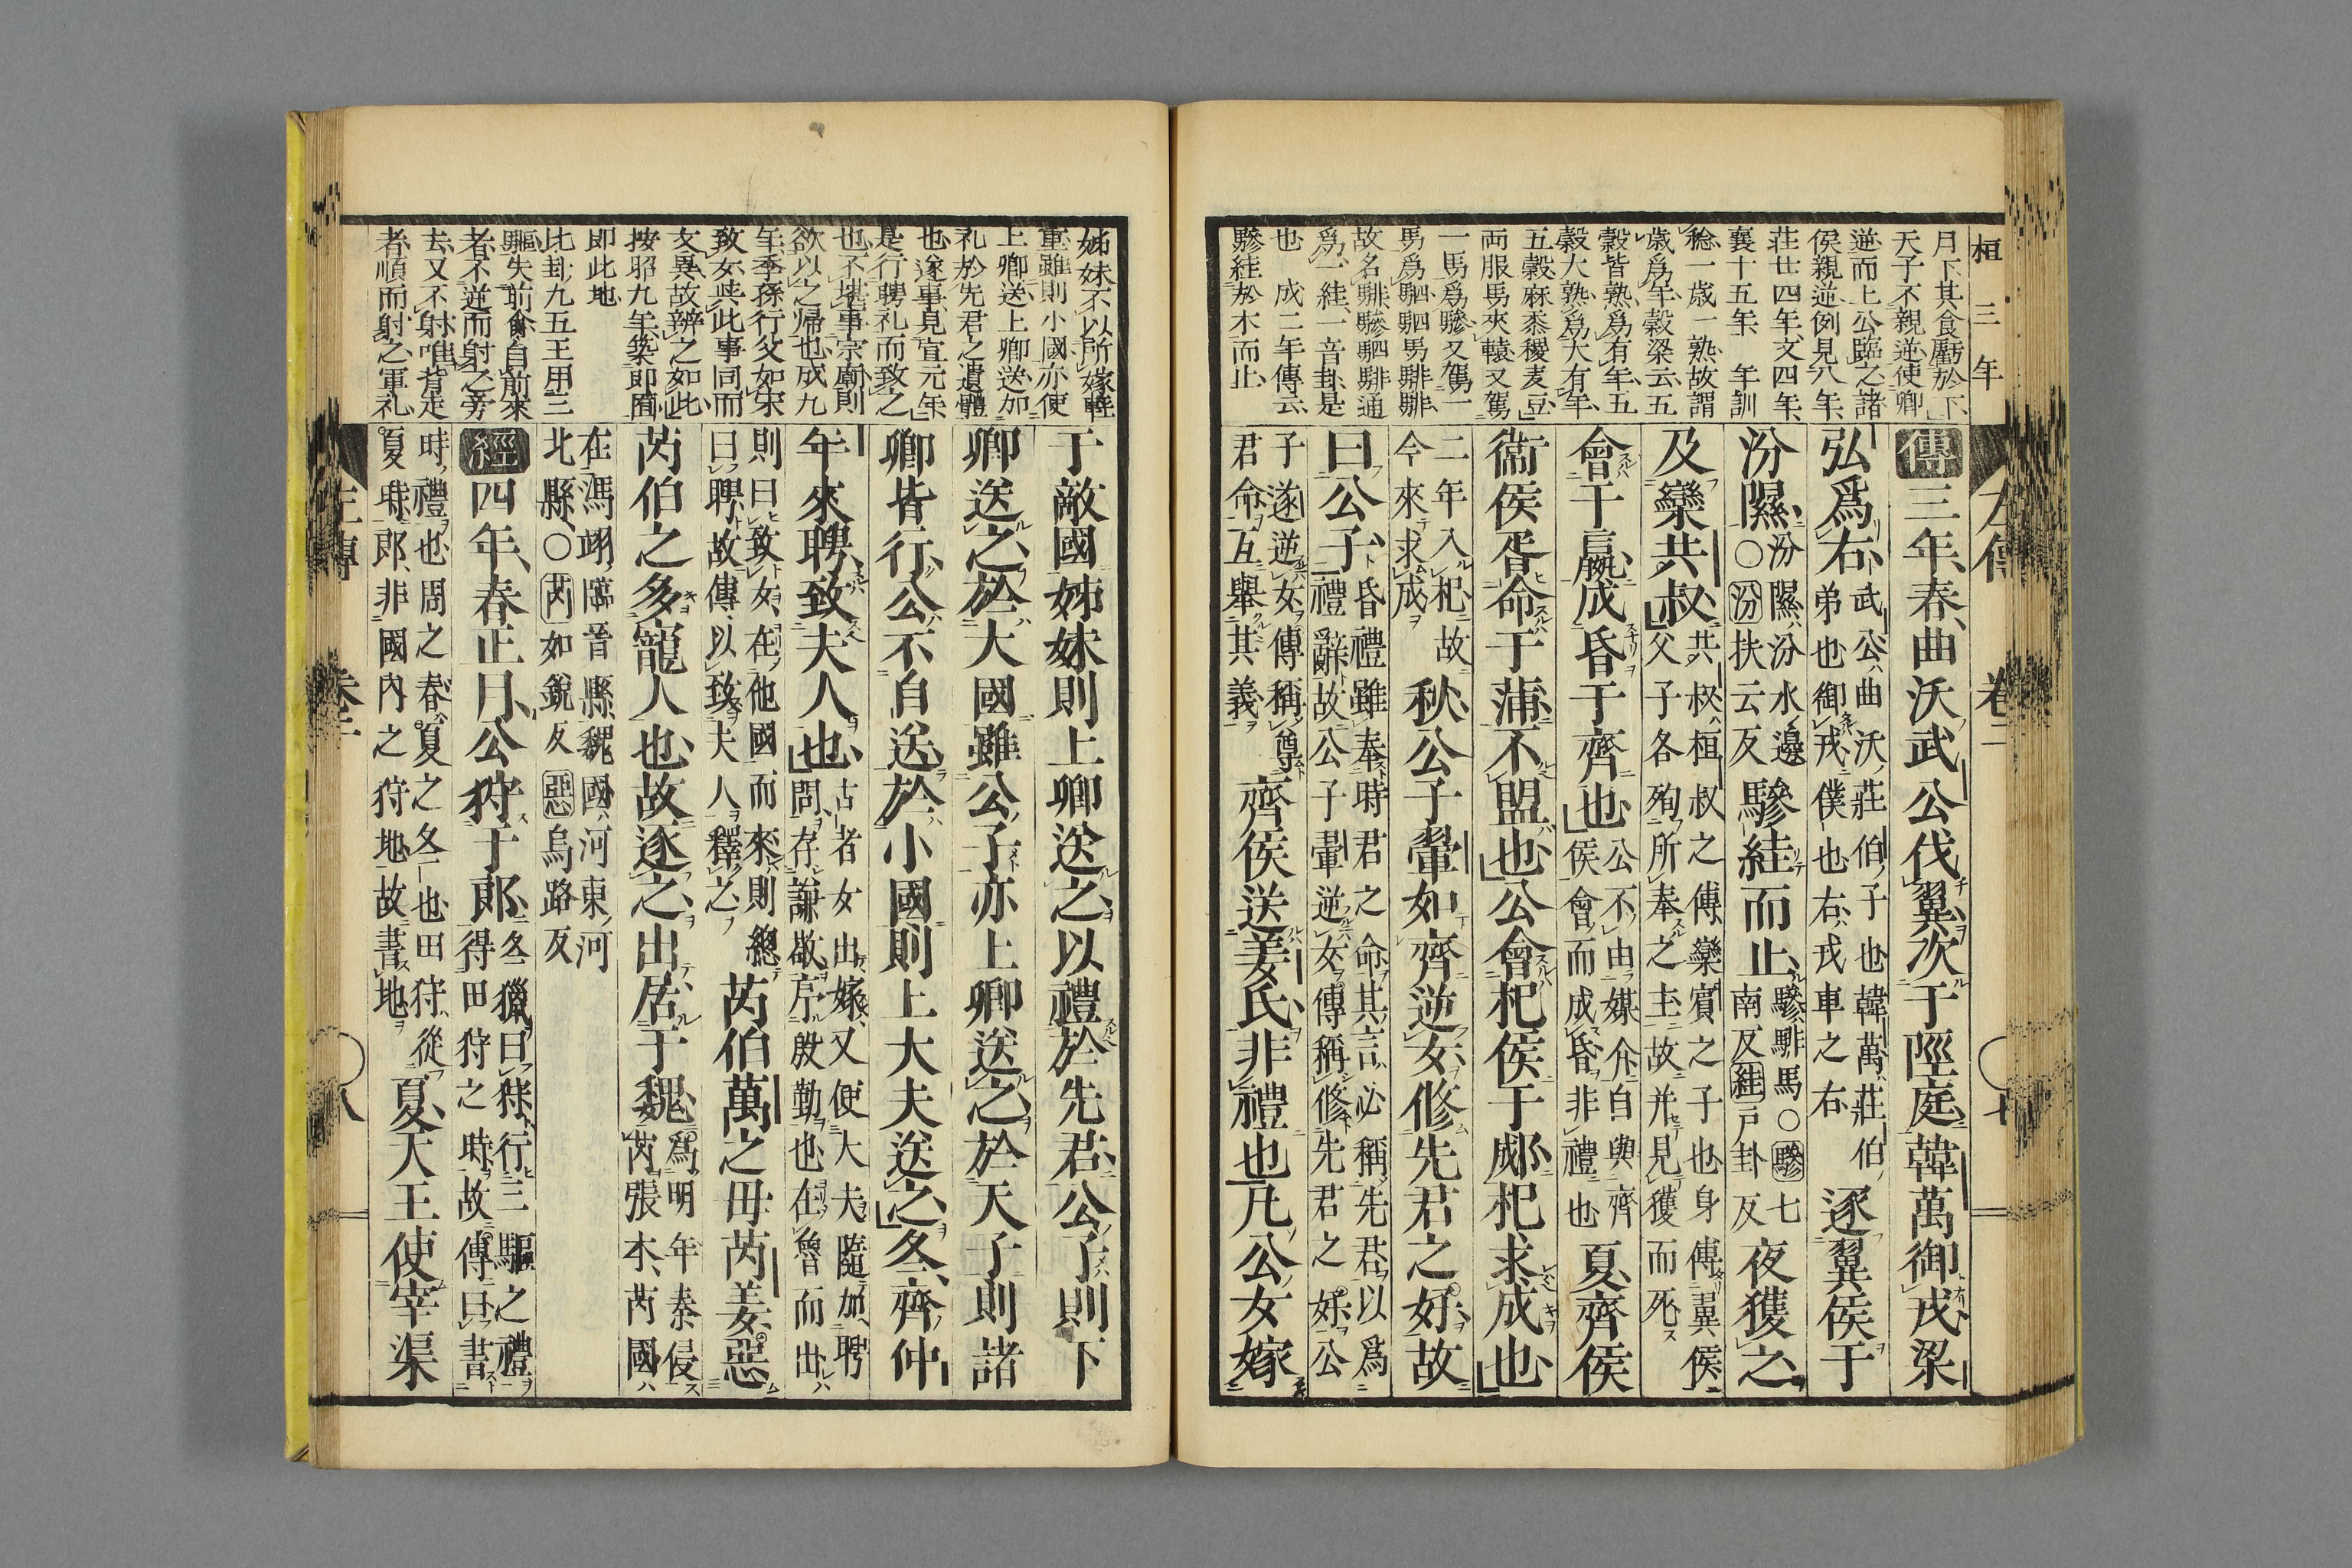 桓三年
月下其食虧於下
天子不親逆使卿
逆而上公臨之諸
侯親逆例見八年
莊廿四年文四年
襄十五年　年訓
稔一歲一熟故謂
歲爲年穀梁云五
穀皆熟爲有年五
穀大熟爲大有年
五穀麻黍稷麦豆
両服馬夾轅又駕
一馬爲驂又駕一
馬爲駟
故名騑驂駟騑通
爲一絓一音卦是
也　成二年傳云
驂絓於木而止
卷二
七
傳三年春曲沃武公伐翼次于陘庭韓萬御戎梁
弘爲右
武公曲沃莊伯子也韓萬莊伯
弟也御戎僕也右戎車之右
逐翼侯于
汾隰
汾隰汾水邊
○汾扶云反
驂絓而止
驂騑馬○驂七
南反絓戸卦反
夜獲之
及欒共叔
共叔桓叔之傅欒賓之子也身傅翼侯
父子各殉所奉之主故并見獲而死
會于嬴成昏于齊也
公不由媒介自與齊
侯會而成昏非禮也
夏齊侯
衞侯胥命于蒲不盟也公會杞侯于郕杞求成也
二年入杞故
今來求成
秋公子翬如齊逆女修先君之好故
曰公子
昏禮雖奉時君之命其言必稱先君以爲
禮辭故公子翬逆女傳稱修先君之好公
子遂逆女傳稱尊
君命互舉其義
齊侯送姜氏非禮也凡公女嫁
姊妹不以所嫁輕
重雖則小國亦使
上卿送上卿送加
礼於先君之遺體
也遂事見宣元年
是行聘礼而致之
也不堪事宗廟則
欲以之帰也成九
年季孫行父如宋
致女與此事同而
文異故辨之如此
按昭九年築郎囿
即此地
比卦九五王用三
驅失前禽自前來
者不逆而射之旁
去又不射唯背走
者順而射之軍礼
于敵國姊妹則上卿送之以禮於先君公子則下
卿送之於大國雖公子亦上卿送之於天子則諸
卿皆行公不自送於小國則上大夫送之冬齊仲
年來聘致夫人也
古者女出嫁又使大夫隨加聘
問存謙敬序殷勤也在魯而出
則曰致女在他國而來則總
曰聘故傳以致夫人釋之
芮伯萬之母芮姜惡
芮伯之多寵人也故逐之出居于魏
爲明年秦侵
芮張本芮國
在馮翊臨晉縣魏國河東河
北縣○芮如銳反惡烏路反
經四年春正月公狩于郎
冬獵曰狩行三驅之禮
得田狩之時故傳曰書
時禮也周之春夏之冬也田狩從
夏時郎非國內之狩地故書地
夏天王使宰渠
八